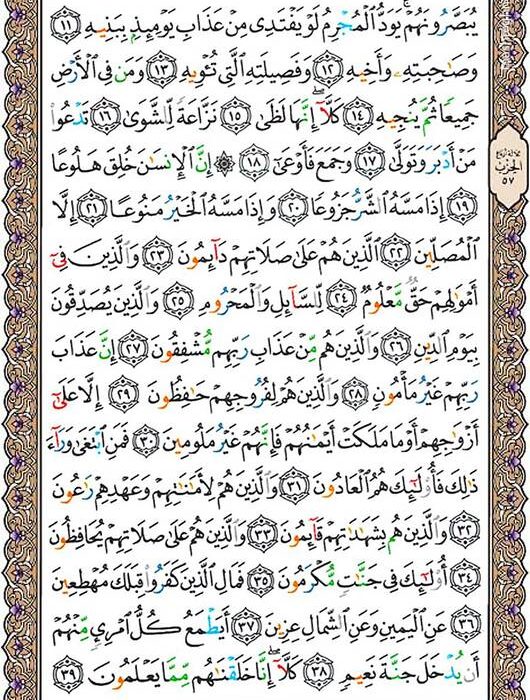 يُبَصَّرُونَهُمْ ۚ يَوَدُّ ٱلْمُجْرِمُ لَوْ يَفْتَدِى مِنْ عَذَابِ يَوْمِئِذٍۭ بِبَنِيهِ ١١
وَصَٰحِبَتِهِۦ وَأَخِيهِ ١٢ وَفَصِيلَتِهِ ٱلَّتِى تُـْٔوِيهِ ١٣ وَمَن فِى ٱلْأَرْضِ
جَمِيعًا ثُمَّ يُنجِيهِ ١٤ كَلَّآ ۖ إِنَّهَا لَظَىٰ ١٥ نَزَّاعَةً لِّلشَّوَىٰ ١٦ تَدْعُوا۟
مَنْ أَدْبَرَ وَتَوَلَّىٰ ١٧ وَجَمَعَ فَأَوْعَىٰٓ ١٨ ۞ إِنَّ ٱلْإِنسَٰنَ خُلِقَ هَلُوعًا
١٩ إِذَا مَسَّهُ ٱلشَّرُّ جَزُوعًا ٢٠ وَإِذَا مَسَّهُ ٱلْخَيْرُ مَنُوعًا ٢١ إِلَّا
ٱلْمُصَلِّينَ ٢٢ ٱلَّذِينَ هُمْ عَلَىٰ صَلَاتِهِمْ دَآئِمُونَ ٢٣ وَٱلَّذِينَ فِىٓ
أَمْوَٰلِهِمْ حَقٌّ مَّعْلُومٌ ٢٤ لِّلسَّآئِلِ وَٱلْمَحْرُومِ ٢٥ وَٱلَّذِينَ يُصَدِّقُونَ
بِيَوْمِ ٱلدِّينِ ٢٦ وَٱلَّذِينَ هُم مِّنْ عَذَابِ رَبِّهِم مُّشْفِقُونَ ٢٧ إِنَّ عَذَابَ
رَبِّهِمْ غَيْرُ مَأْمُونٍ ٢٨ وَٱلَّذِينَ هُمْ لِفُرُوجِهِمْ حَٰفِظُونَ ٢٩ إِلَّا عَلَىٰٓ
أَزْوَٰجِهِمْ أَوْ مَا مَلَكَتْ أَيْمَٰنُهُمْ فَإِنَّهُمْ غَيْرُ مَلُومِينَ ٣٠ فَمَنِ ٱبْتَغَىٰ وَرَآءَ
ذَٰلِكَ فَأُو۟لَٰٓئِكَ هُمُ ٱلْعَادُونَ ٣١ وَٱلَّذِينَ هُمْ لِأَمَٰنَٰتِهِمْ وَعَهْدِهِمْ رَٰعُونَ
٣٢ وَٱلَّذِينَ هُم بِشَهَٰدَٰتِهِمْ قَآئِمُونَ ٣٣ وَٱلَّذِينَ هُمْ عَلَىٰ صَلَاتِهِمْ يُحَافِظُونَ
٣٤ أُو۟لَٰٓئِكَ فِى جَنَّٰتٍ مُّكْرَمُونَ ٣٥ فَمَالِ ٱلَّذِينَ كَفَرُوا۟ قِبَلَكَ مُهْطِعِينَ
٣٦ عَنِ ٱلْيَمِينِ وَعَنِ ٱلشِّمَالِ عِزِينَ ٣٧ أَيَطْمَعُ كُلُّ ٱمْرِئٍ مِّنْهُمْ
أَن يُدْخَلَ جَنَّةَ نَعِيمٍ ٣٨ كَلَّآ ۖ إِنَّا خَلَقْنَٰهُم مِّمَّا يَعْلَمُونَ ٣٩
الحزب
٥٧